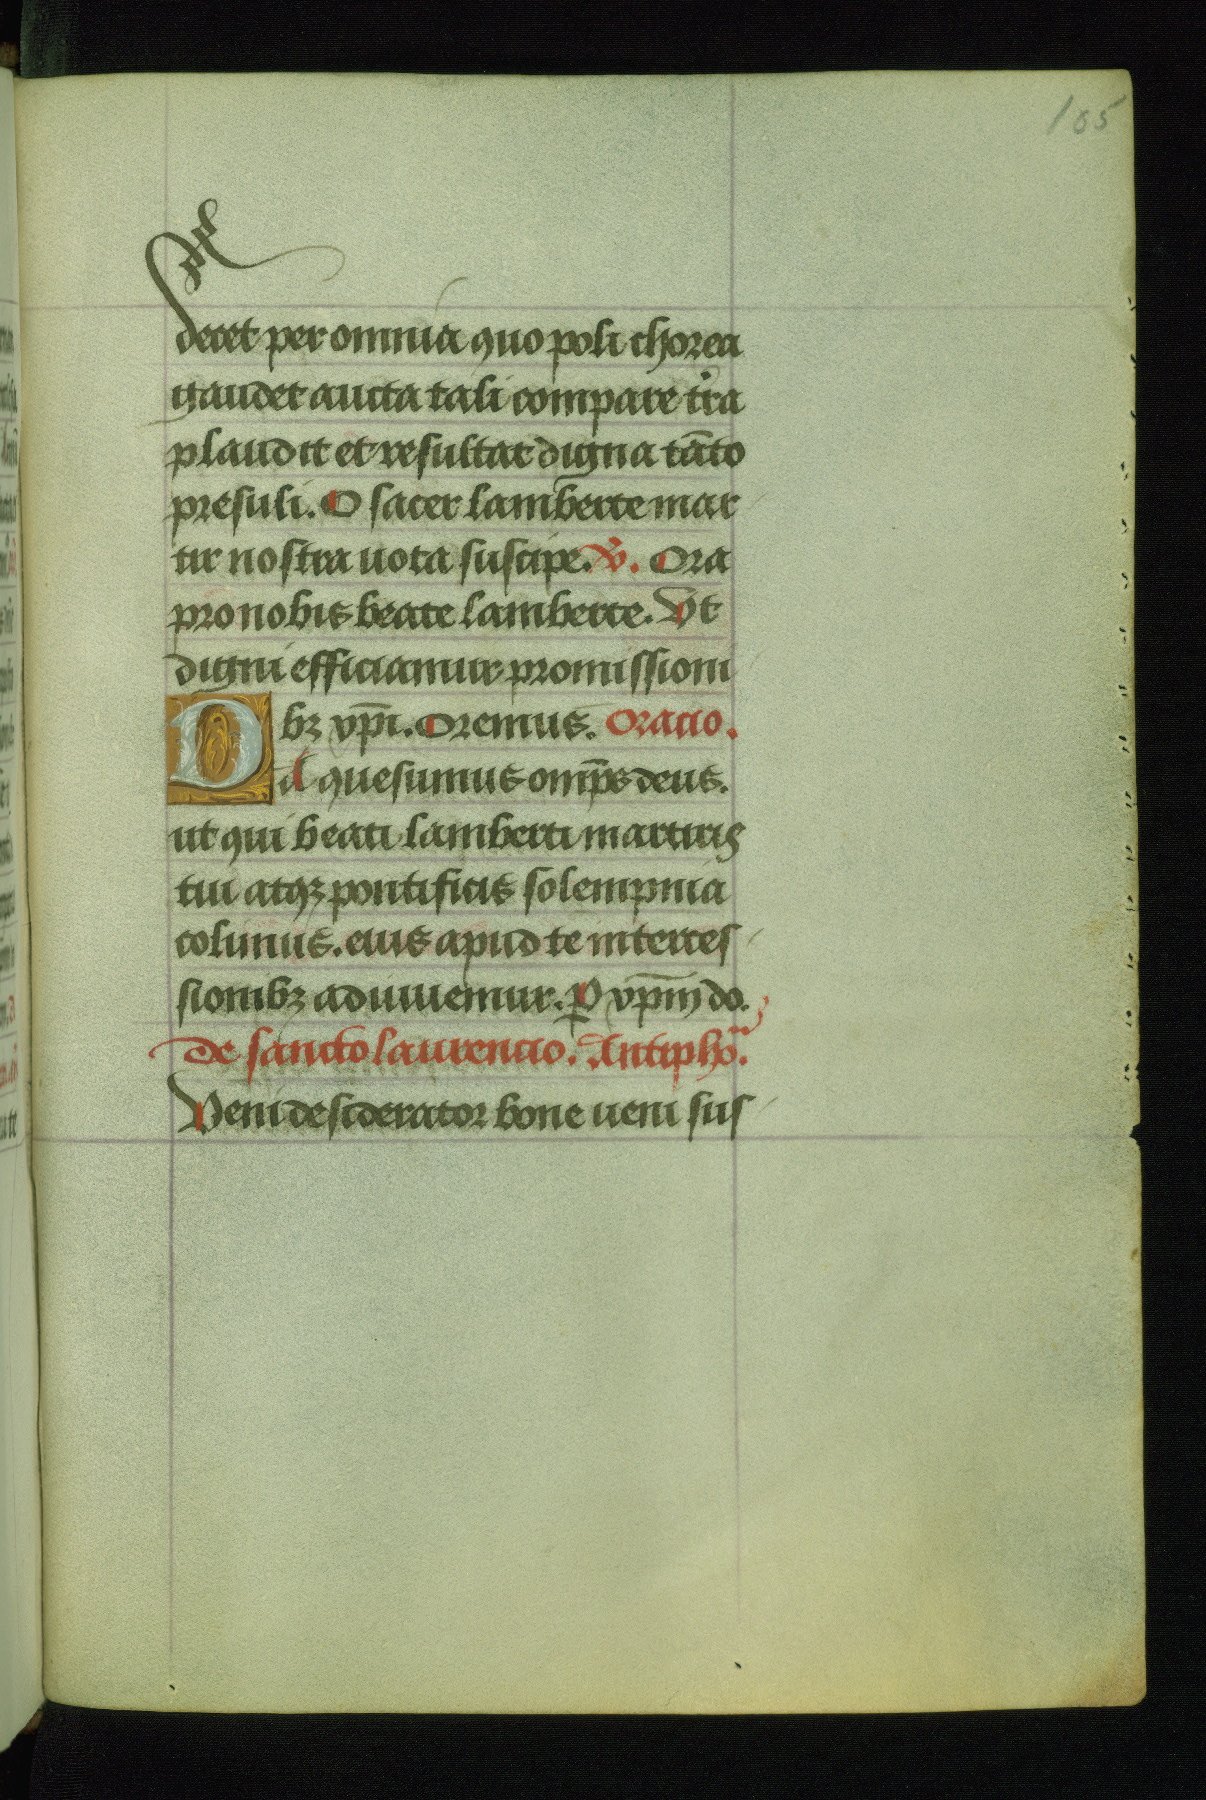 105
decet per omnia quo poli chorea
gaudet aucta tali compare tr̄a
plaudit et resultat digna tāto
presuli. O sacer lamberte mar
tir nostra uota suscipe. V. Ora
pro nobis beate lamberte. Vt
digni efficiamur promissioni
bꝫ xp̄i. Oremus. Oracio.
DA quesumus omp̄s deus.
ut qui beati lamberti martiris
tui atqꝫ pontificis solempnia
colimus. eius apud te interces
sionibꝫ adiuuemur. P xp̄m do.
de sancto laurencio. Antipho.
Veni desiderator bone ueni sus